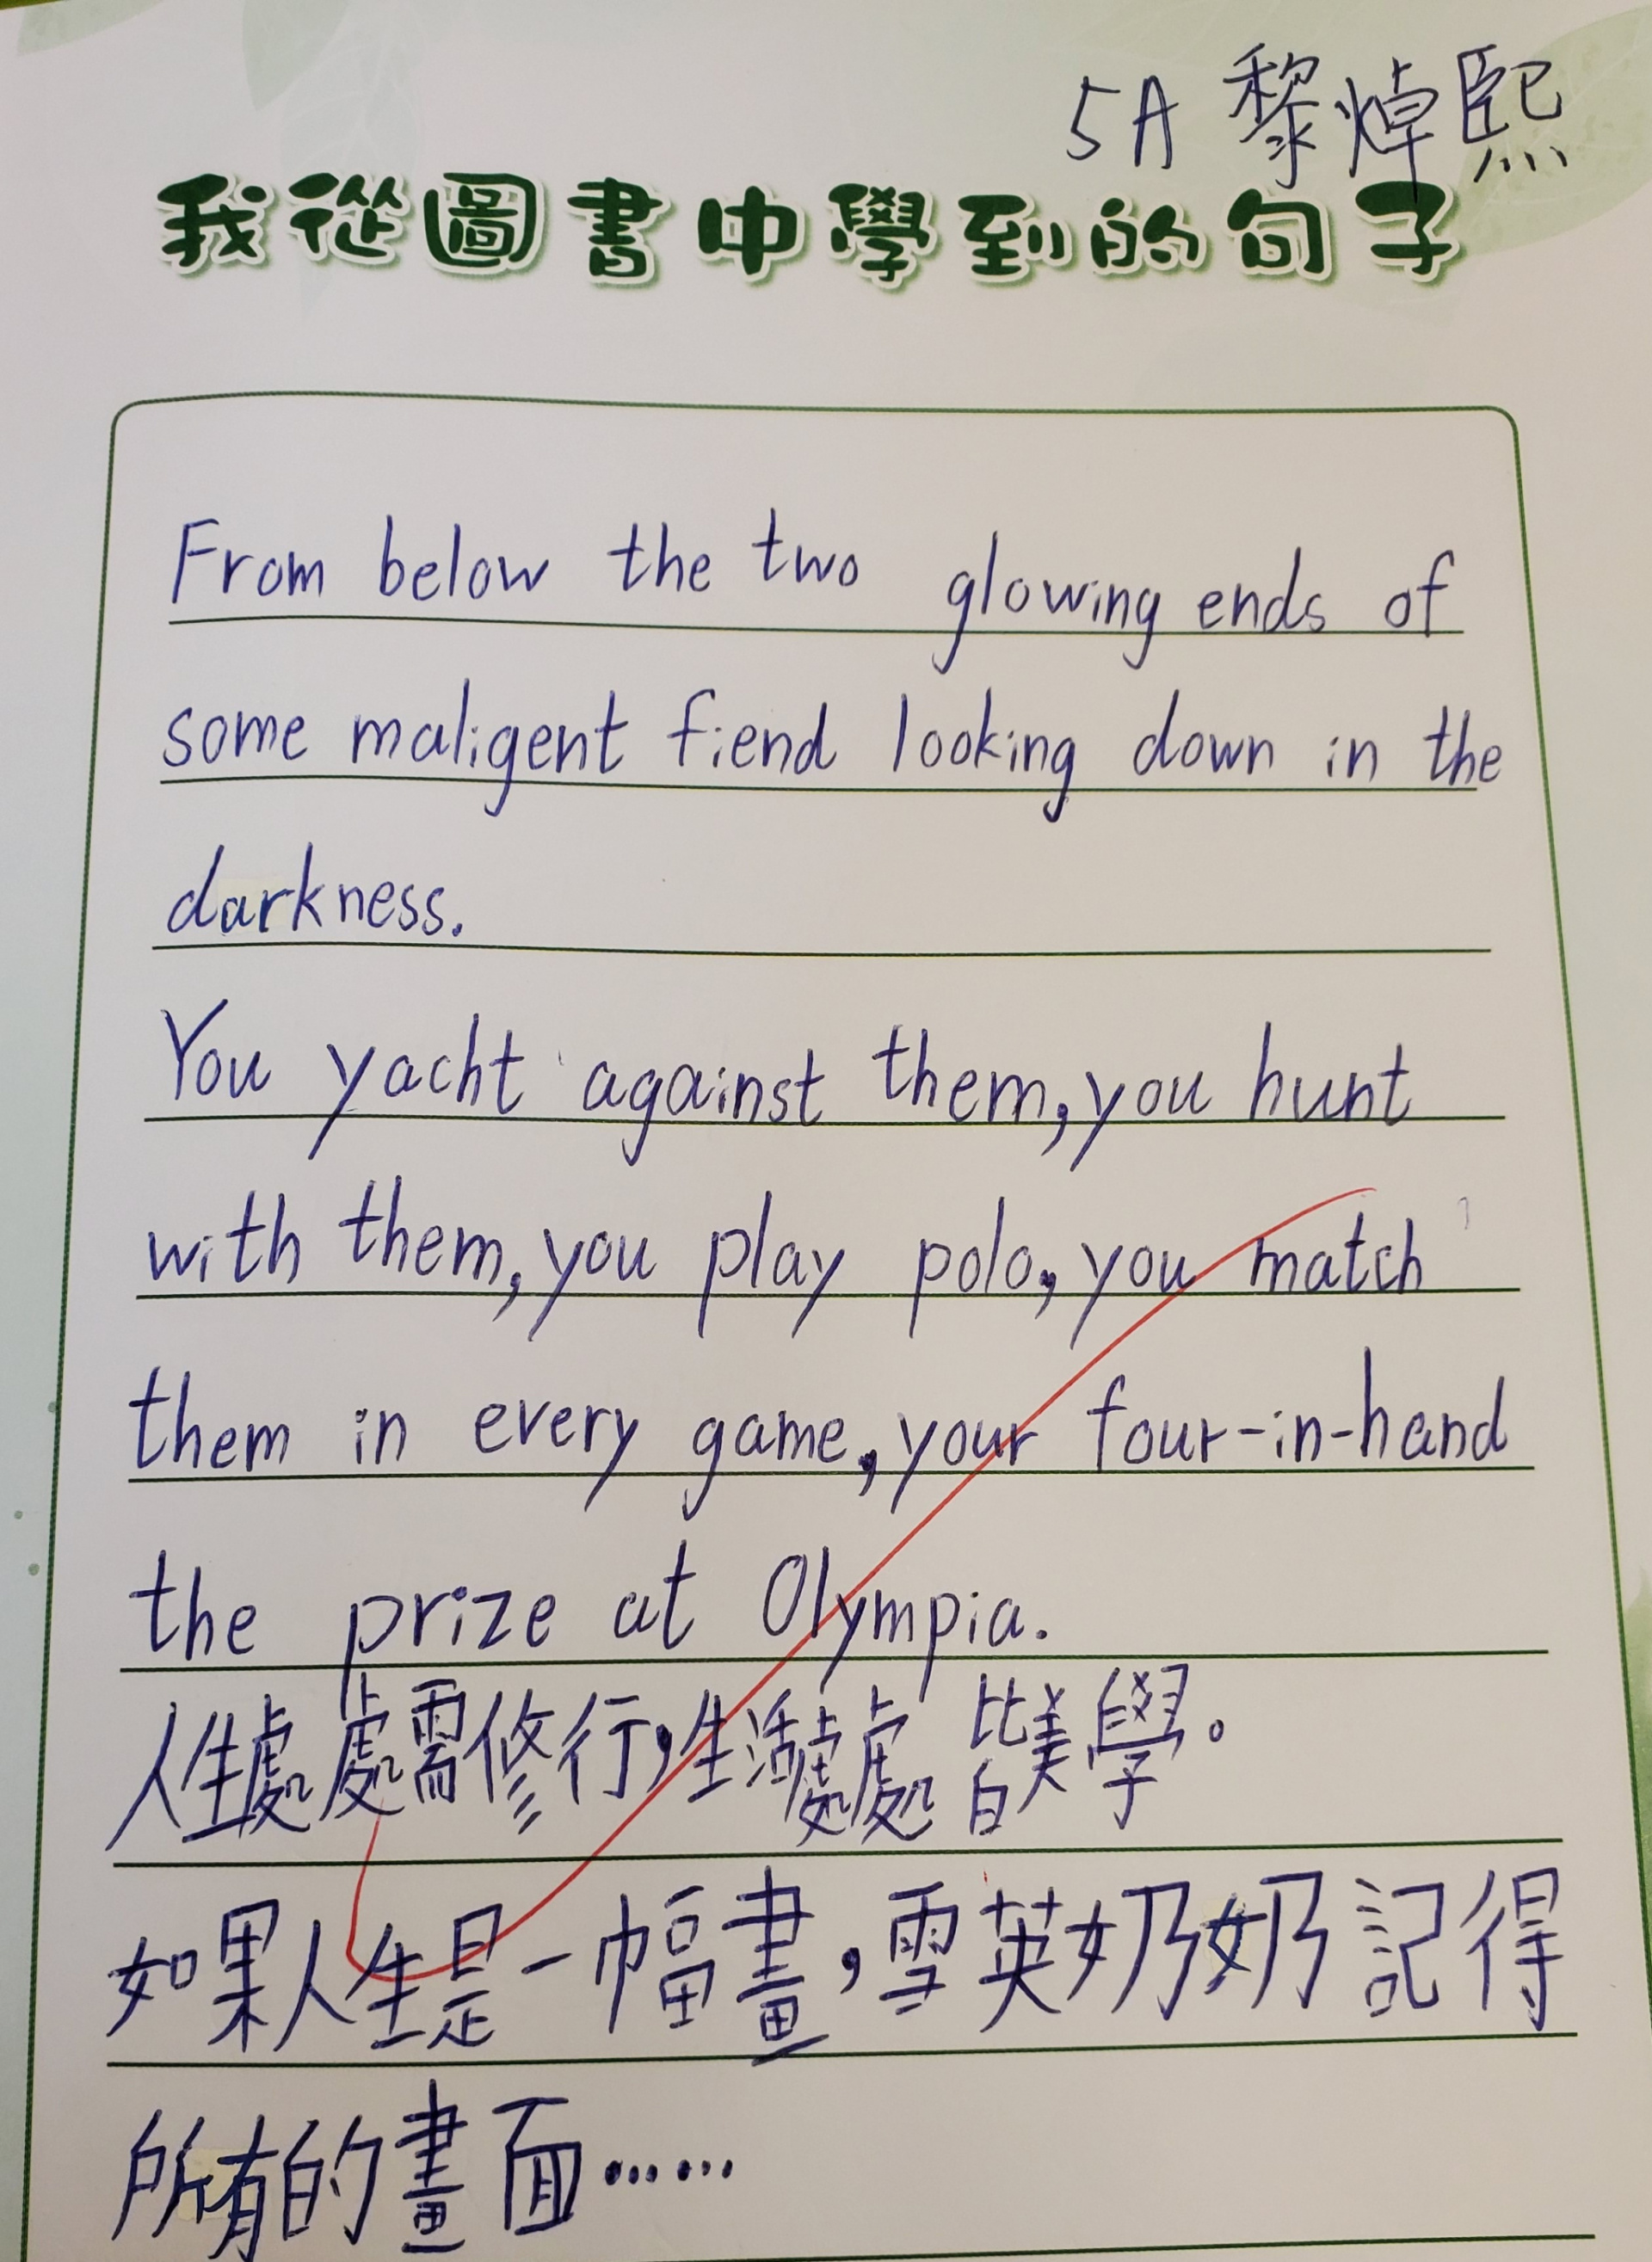 5A 黎焯熙
我從圖書中學到的句子
From below the two glowing ends of
some maligent fiend looking down in the
darkness.
You yacht against them, you hunt
with them, you play polo, you match
them in every game, your four-in-hand
the prize at Olympia.
人生處處需修行，生活處處皆美學。
如果人生是一幅畫，雪英奶奶記得
所有的畫面……